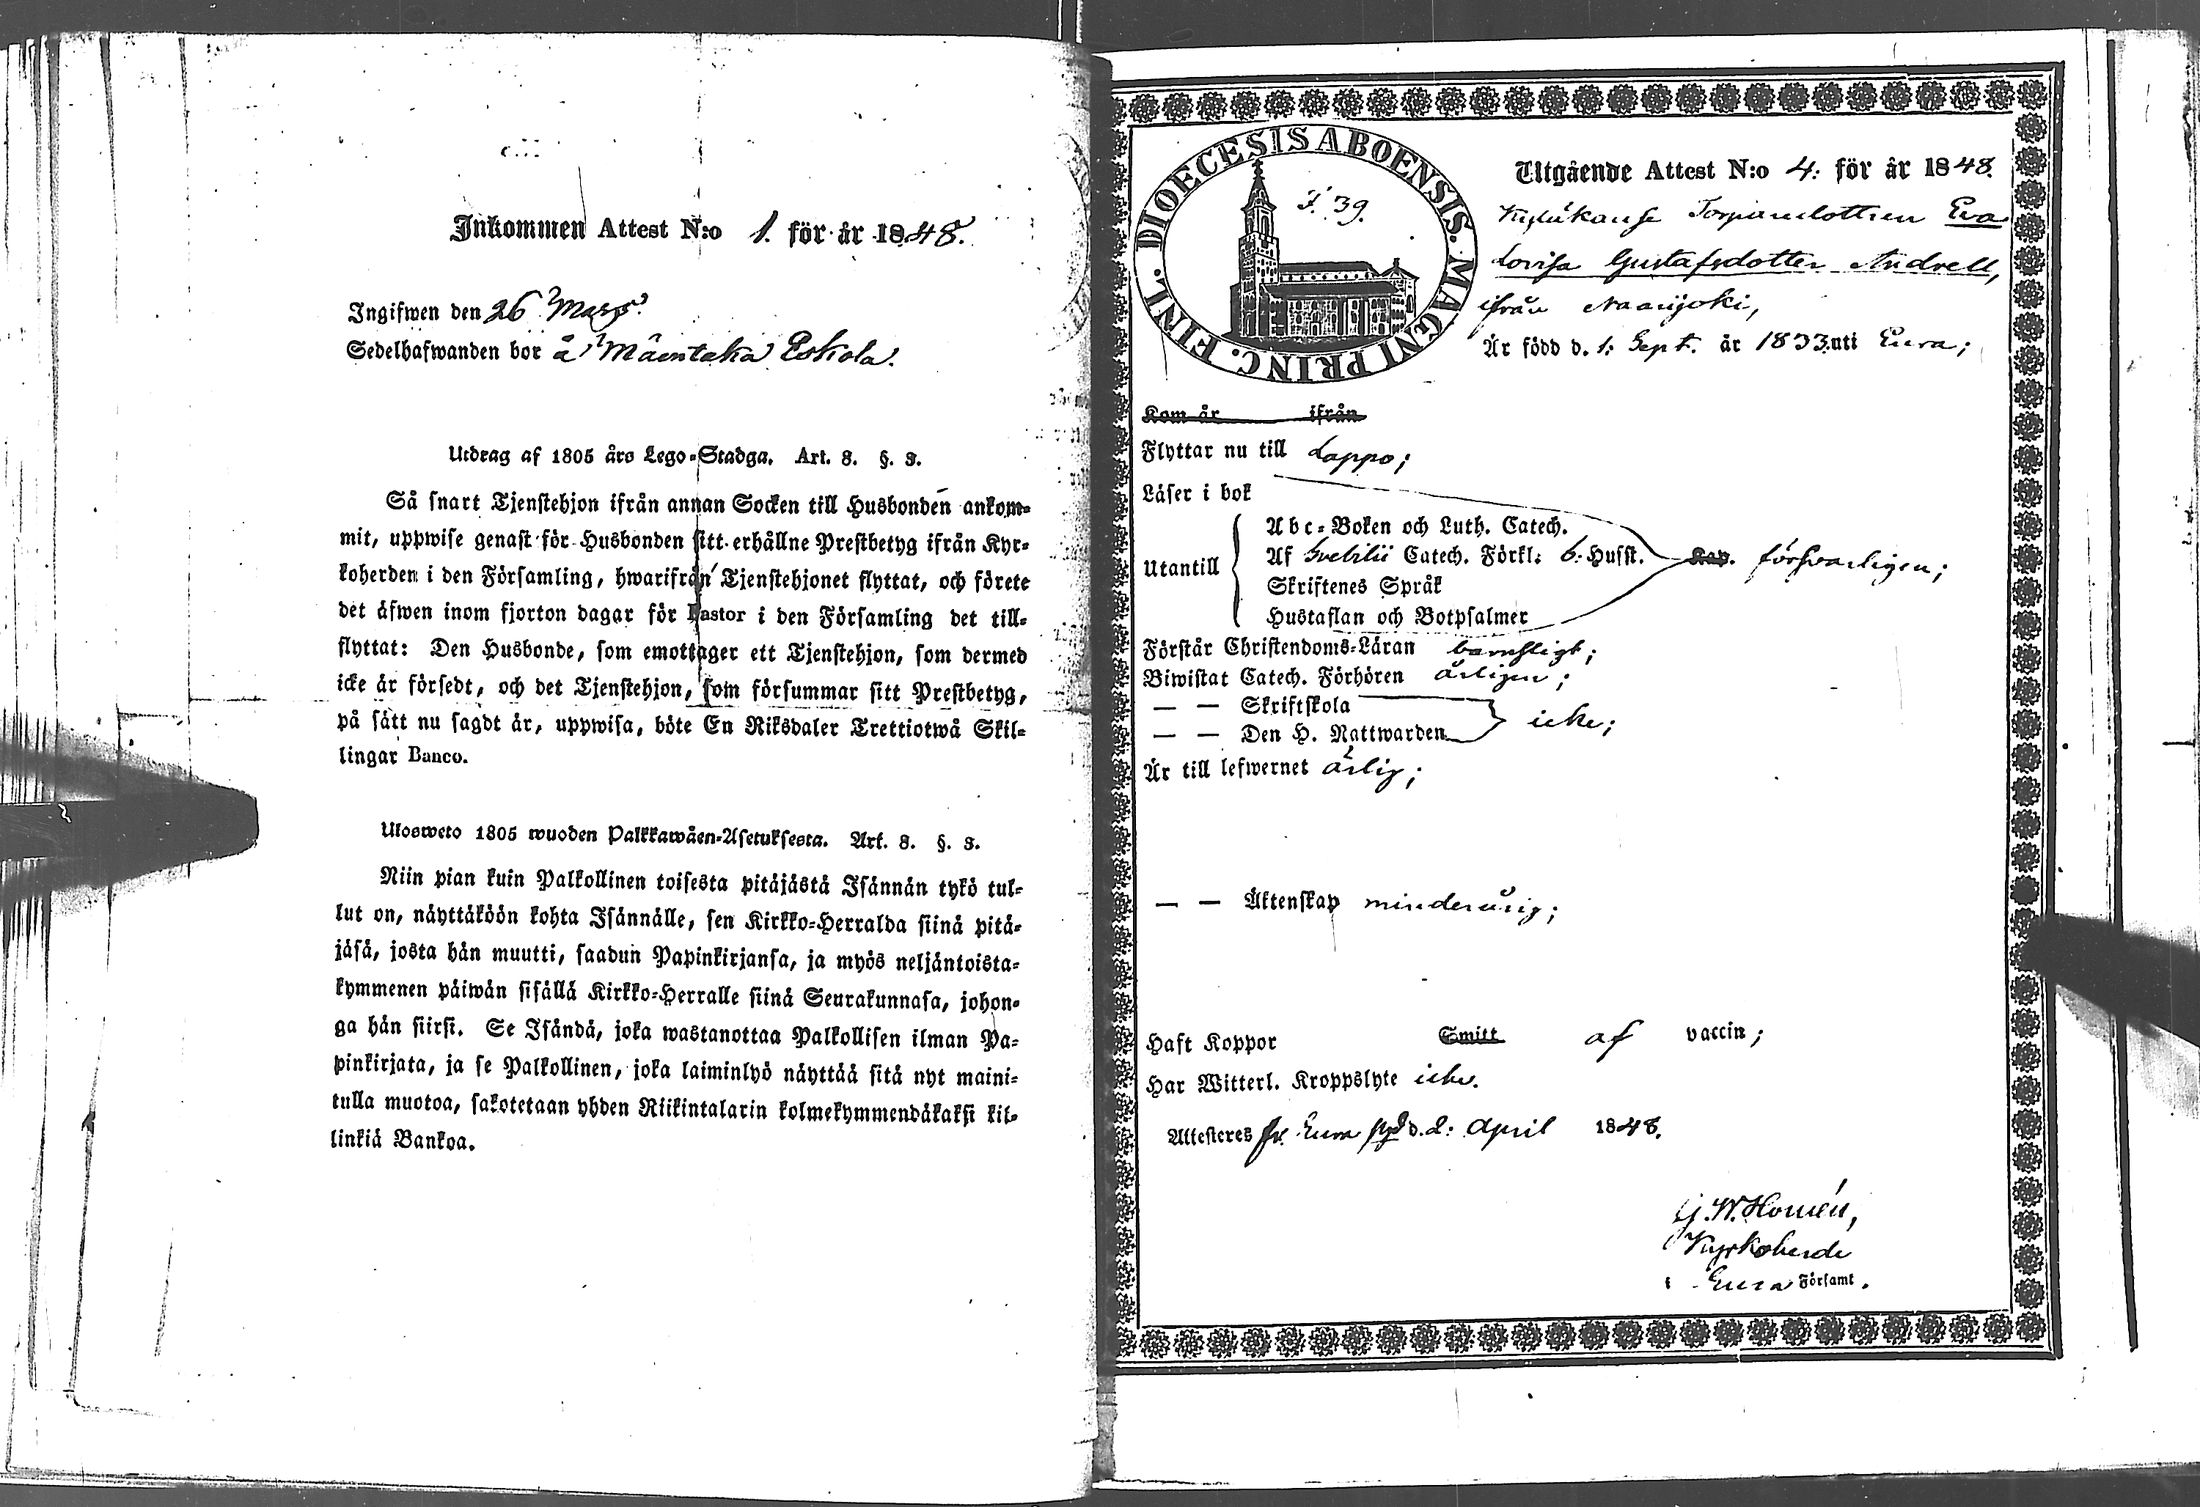 Inkommen Attest N:o 1. för år 1848.
Ingifwen den 26 Mars.
Sedelhafwanden bor å Mäentaka Eskola.
Utdrag af 1805 års Lego-Stadga. Art. 8. §. 3.
Så snart Tjenstehjon ifrån annan Socken till Husbonden ankom-
mit, uppwise genast för Husbonden sitt erhållne Prestbetyg ifrån Kyr-
koherden i den Församling, hwarifrån Tjenstehjonet flyttat, och förete
det äfwen inom fjorton dagar för Pastor i den Församling det till-
flyttat: Den Husbonde, som emottager ett Tjenstehjon, som dermed
icke är försedt, och det Tjenstehjon, som försummar sitt Prestbetyg,
på sätt nu sagdt är, uppwisa, böte En Riksdaler Trettiotwå Skil-
lingar Banco.
Ulosweto 1805 wuoden Palkkawäen-Asetuksesta. Art. 8. §. 3.
Niin pian kuin Palkollinen toisesta pitäjästä Isännän tykö tul-
lut on, näyttäköön kohta Isännälle, sen Kirkko-Herralda siinä pitä-
jäsä, josta hän muutti, saadun Papinkirjansa, ja myös neljäntoista-
kymmenen päiwän sisällä Kirkko-Herralle siinä Seurakunnasa, johon-
ga hän siirsi. Se Isändä, joka wastanottaa Palkollisen ilman Pa-
pinkirjata, ja se Palkollinen, joka laiminlyö näyttää sitä nyt maini-
tulla muotoa, sakotetaan yhden Riikintalarin kolmekymmendäkaksi kil-
linkiä Bankoa.
DIOECESIS ABOENSIS. MAGNI PRINC. FINL.
39.
Utgående Attest N:o 4: för år 1848.
Torparedottren Eva
Lovisa Gustafsdotter Andrell,
ifrån Naarijoki,
Är född d. 1: Sept. år 1833 uti Eura;
Kom år ifrån
Flyttar nu till Lappo;
Läser i bok
Utantill
Abc-Boken och Luth. Catech.
Af Svebilii Catech. Förkl: 6. Hufst. Kap. försvarligen;
Skriftenes Språk
Hustaflan och Botpsalmer
Förstår Christendoms-Läran barnsligt;
Biwistat Catech. Förhören årligen;
— — Skriftskola
— — Den H. Nattwarden icke;
Är till lefwernet ärlig;
— — Äktenskap minderårig;
Haft Koppor Smitt af vaccin;
Har Witterl. Kroppslyte icke.
Attesteres fr. Eura d. 2: April 1848.
G. W. Homén,
Kyrkoherde
i Eura Församl.